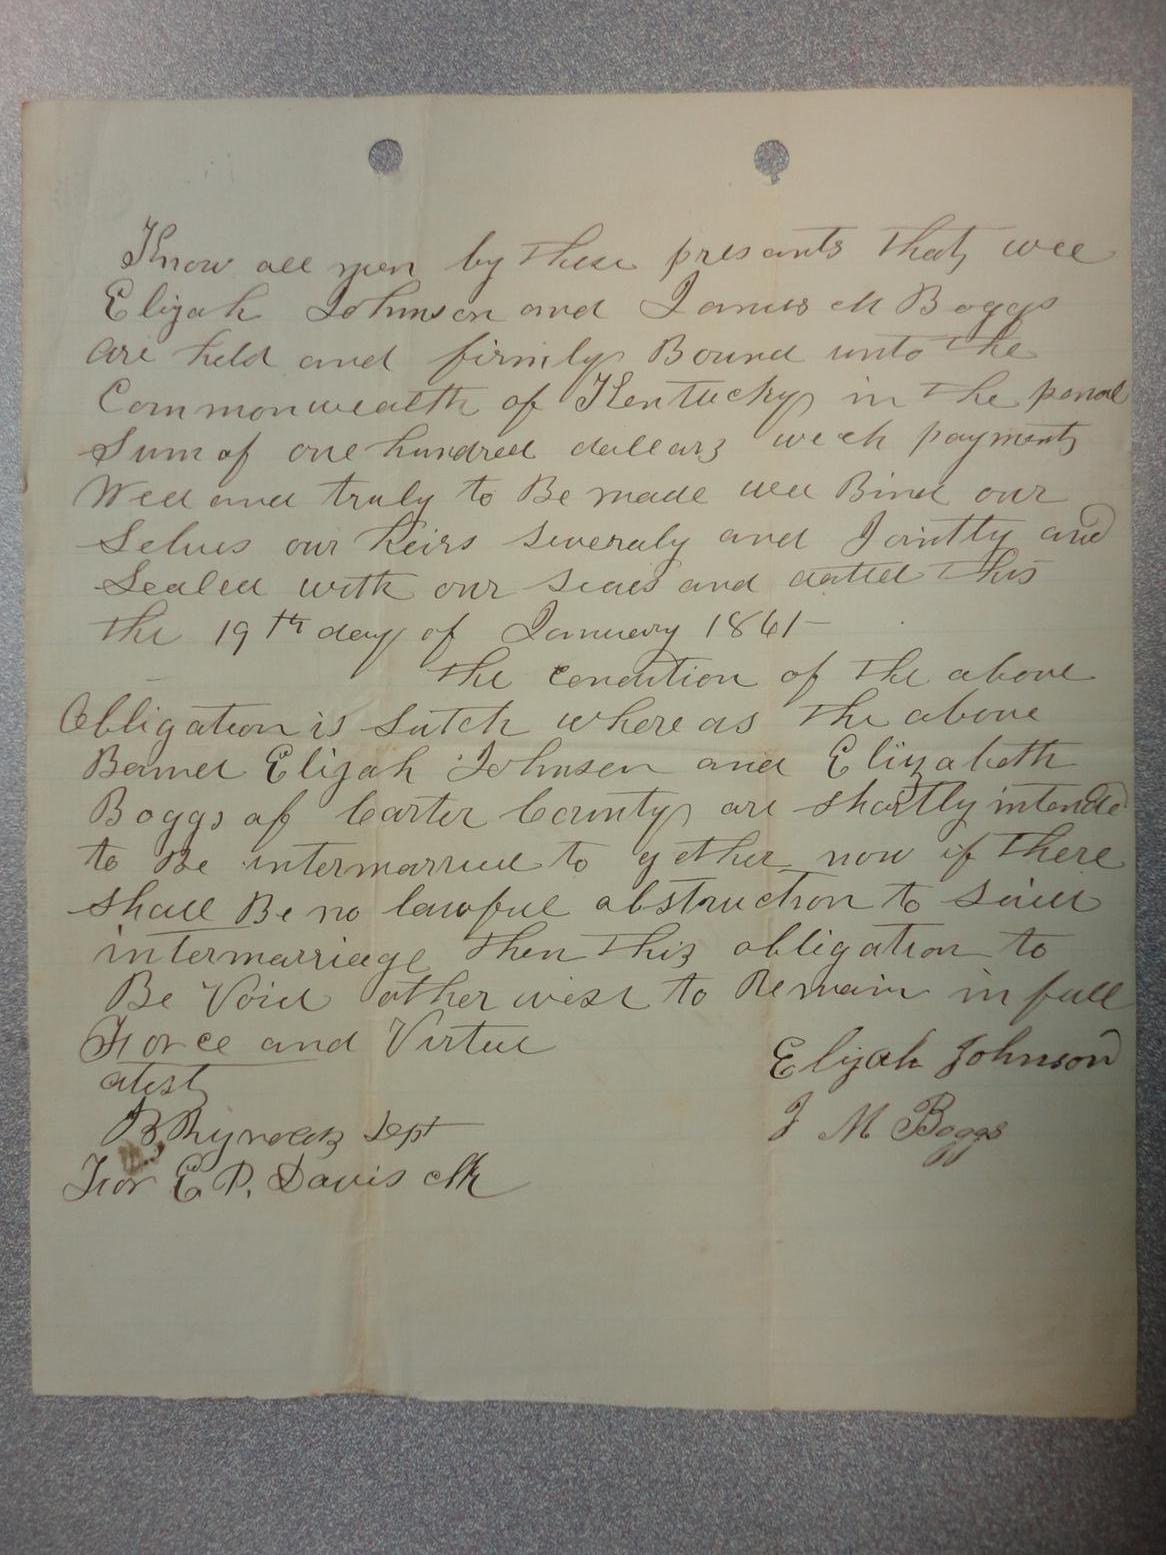 Know all men by these presants that wee
Elijah Johnson and James M Boggs
are held and firmly Bound unto the
Commonwealth of Kentucky in the penal
Sum of one hundred dallars wich payment
Well and truly to Be made wee Bind our
Selves our heirs severaly and Jointly and
Sealed with our seals and dated this
the 19th day of January 1861
the condition of the above
Obligation is Sutch where as the above
Elijah Johnson and Elizabeth
Boggs of Carter County are shortly intended
to Be intermarried to gether now if there
shall Be no lawful abstruction to said
intermarriage then this obligation to
Be Void other wise to Remain in full
Force and Virtue
Elijah Johnson
atest
J M Boggs
B Rhynolds Dept
For E P. Davis clk